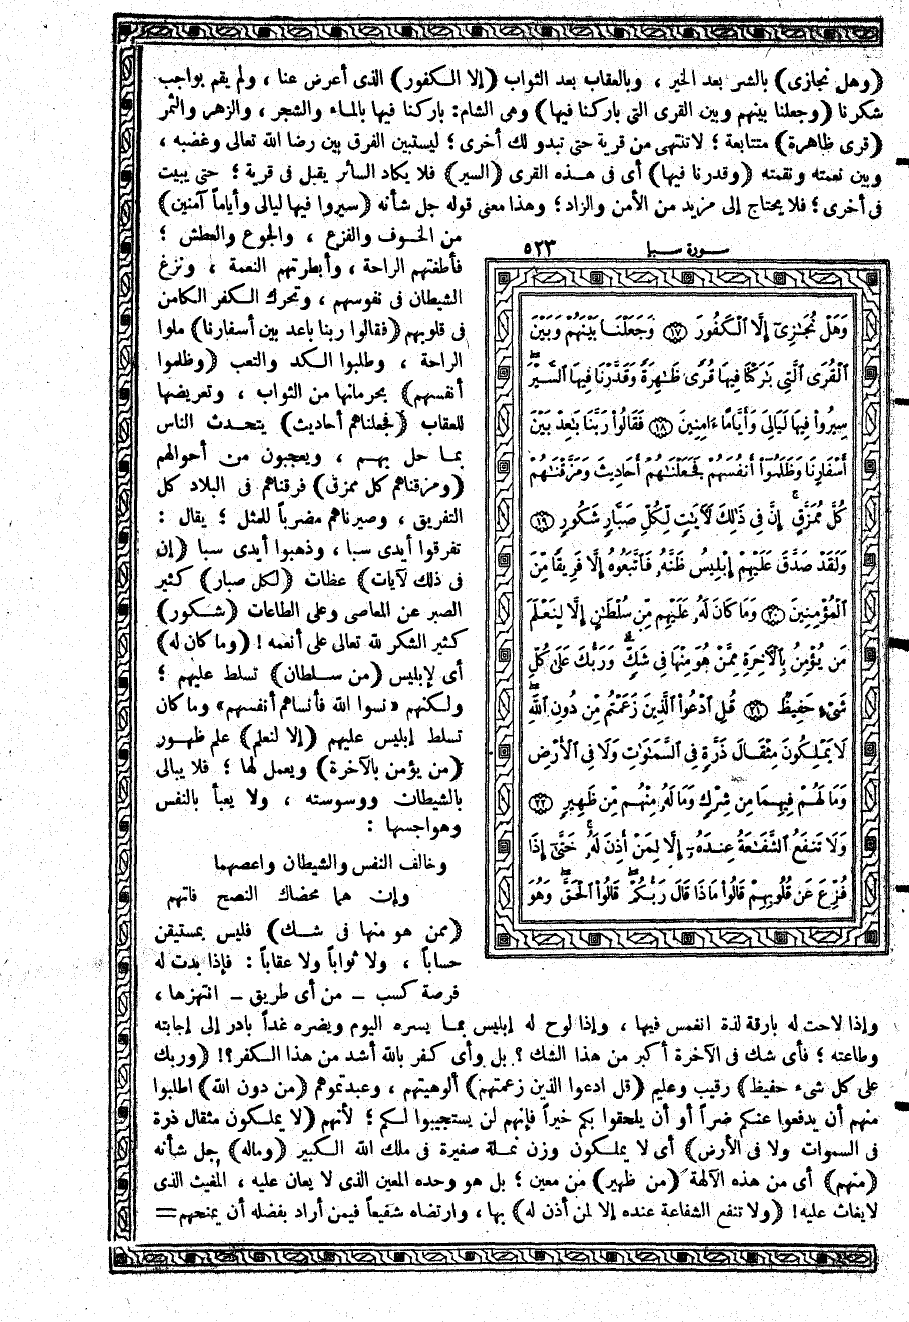 (وهل نجازى) بالشر بعد الخير ، وبالعقاب بعد الثواب (إلا الكفور) الذى أعرض عنا ، ولم يقم بواجب
شكرنا (وجعلنا بينهم وبين القرى التى باركنا فيها) وهى الشام: باركنا فيها بالماء والشجر ، والزهر والثمر
(قرى ظاهرة) متتابعة ؛ لا تنتهى من قرية حتى تبدو لك أخرى ؛ ليستبين الفرق بين رضا الله تعالى وغضبه ،
وبين نعمته ونقمته (وقدرنا فيها) أى فى هذه القرى (السير) فلا يكاد السائر يقبل فى قرية ؛ حتى يبيت
فى أخرى ؛ فلا يحتاج إلى مزيد من الأمن والزاد؛ وهذا معنى قوله جل شأنه (سيروا فيها ليالى وأياماً آمنين)
من الخوف والفزع ، والجوع والعطش ؛
فأطغتهم الراحة ، وأبطرتهم النعمة ، ونزغ
الشيطان فى نفوسهم ، وتحرك الكفر الكامن
فى قلوبهم (فقالوا ربنا باعد بين أسفارنا) ملوا
الراحة ، وطلبوا الكد والتعب (وظلموا
أنفسهم) بحرمانها من الثواب ، وتعريضها
للعقاب (فجعلناهم أحاديث) يتحدث الناس
بما حل بهم ، ويعجبون من أحوالهم
(ومزقناهم كل ممزق) فرقناهم فى البلاد كل
التفريق ، وصيرناهم مضرباً للمثل ؛ يقال :
تفرقوا أيدى سبا ، وذهبوا أيدى سبا (إن
فى ذلك لآيات) عظات (لكل صبار) كثير
الصبر عن المعاصى وعلى الطاعات (شكور)
كثير الشكر لله تعالى على أنعمه ! (وما كان له)
أى لإبليس (من سلطان) تسلط عليهم ؛
ولكنهم «نسوا الله فأنساهم أنفسهم» وما كان
تسلط إبليس عليهم (إلا لنعلم) علم ظهور
(من يؤمن بالآخرة) ويعمل لها ؛ فلا يبالى
بالشيطان ووسوسته ، ولا يعبأ بالنفس
وهواجسها :
وخالف النفس والشيطان واعصهما
وإن هما محضاك النصح فاتهم
(ممن هو منها فى شك) فليس بمستيقن
حساباً ، ولا ثواباً ولا عقاباً : فإذا بدت له
فرصة كسب – من أى طريق – انتهزها ،
سورة سبإ ٥٢٣
وَهَلْ نُجَٰزِىٓ إِلَّا ٱلْكَفُورَ ۝١٧ وَجَعَلْنَا بَيْنَهُمْ وَبَيْنَ
ٱلْقُرَى ٱلَّتِى بَٰرَكْنَا فِيهَا قُرًى ظَٰهِرَةً وَقَدَّرْنَا فِيهَا ٱلسَّيْرَ ۖ
سِيرُوا۟ فِيهَا لَيَالِىَ وَأَيَّامًا ءَامِنِينَ ۝١٨ فَقَالُوا۟ رَبَّنَا بَٰعِدْ بَيْنَ
أَسْفَارِنَا وَظَلَمُوٓا۟ أَنفُسَهُمْ فَجَعَلْنَٰهُمْ أَحَادِيثَ وَمَزَّقْنَٰهُمْ
كُلَّ مُمَزَّقٍ ۚ إِنَّ فِى ذَٰلِكَ لَآيَٰتٍ لِّكُلِّ صَبَّارٍ شَكُورٍ ۝١٩
وَلَقَدْ صَدَّقَ عَلَيْهِمْ إِبْلِيسُ ظَنَّهُۥ فَٱتَّبَعُوهُ إِلَّا فَرِيقًا مِّنَ
ٱلْمُؤْمِنِينَ ۝٢٠ وَمَا كَانَ لَهُۥ عَلَيْهِم مِّن سُلْطَٰنٍ إِلَّا لِنَعْلَمَ
مَن يُؤْمِنُ بِٱلْآخِرَةِ مِمَّنْ هُوَ مِنْهَا فِى شَكٍّ ۗ وَرَبُّكَ عَلَىٰ كُلِّ
شَىْءٍ حَفِيظٌ ۝٢١ قُلِ ٱدْعُوا۟ ٱلَّذِينَ زَعَمْتُم مِّن دُونِ ٱللَّهِ ۖ
لَا يَمْلِكُونَ مِثْقَالَ ذَرَّةٍ فِى ٱلسَّمَٰوَٰتِ وَلَا فِى ٱلْأَرْضِ
وَمَا لَهُمْ فِيهِمَا مِن شِرْكٍ وَمَا لَهُۥ مِنْهُم مِّن ظَهِيرٍ ۝٢٢
وَلَا تَنفَعُ ٱلشَّفَٰعَةُ عِندَهُۥٓ إِلَّا لِمَنْ أَذِنَ لَهُۥ ۚ حَتَّىٰٓ إِذَا
فُزِّعَ عَن قُلُوبِهِمْ قَالُوا۟ مَاذَا قَالَ رَبُّكُمْ ۖ قَالُوا۟ ٱلْحَقَّ ۖ وَهُوَ
وإذا لاحت له بارقة لذة انغمس فيها ، وإذا لوح له إبليس بما يسره اليوم ويضره غداً بادر إلى إجابته
وطاعته ؛ فأى شك فى الآخرة أكبر من هذا الشك ؟ بل وأى كفر بالله أشد من هذا الكفر؟! (وربك
على كل شىء حفيظ) رقيب وعليم (قل ادعوا الذين زعمتم) ألوهيتهم ، وعبدتموهم (من دون الله) اطلبوا
منهم أن يدفعوا عنكم ضراً أو أن يلحقوا بكم خيراً فإنهم لن يستجيبوا لكم ؛ لأنهم (لا يملكون مثقال ذرة
فى السموات ولا فى الأرض) أى لا يملكون وزن نملة صغيرة فى ملك الله الكبير (وماله) جل شأنه
(منهم) أى من هذه الآلهة (من ظهير) من معين ؛ بل هو وحده المعين الذى لا يعان عليه ، المغيث الذى
لايغاث عليه! (ولا تنفع الشفاعة عنده إلا لمن أذن له) بها ، وارتضاه شفيعاً فيمن أراد بفضله أن يمنحهم=